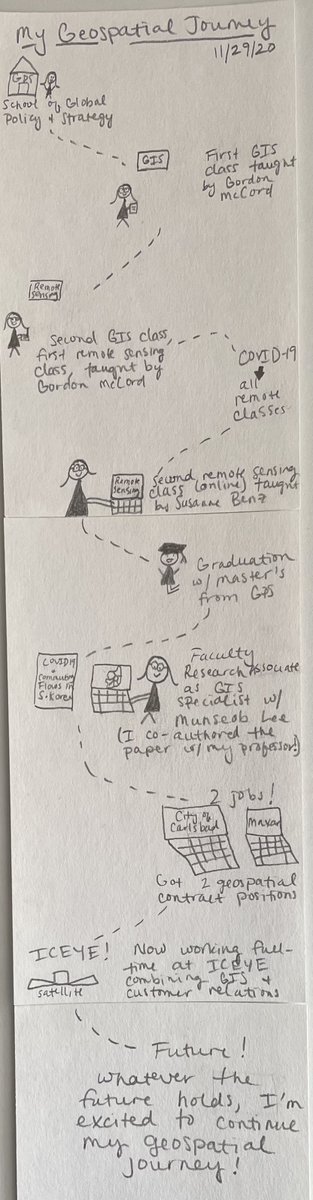 My Geospatial Journey
11/29/20
GPS
School of Global
Policy & Strategy
GIS
First GIS
class taught
by Gordon
McCord
Remote
Sensing
Second GIS class,
first remote sensing
class, taught by
Gordon McCord
COVID-19
all
remote
classes
Remote
Sensing
second remote sensing
class (online) taught
by Susanne Benz
Graduation
w/ master's
from GPS
COVID19
+
Commuting
Flows in
S. Korea
Faculty
Research Associate
as GIS
specialist w/
Munseob Lee
(I co-authored the
paper w/ my professor!)
2 jobs!
City of
Carlsbad
Maxar
Got 2 geospatial
contract positions
ICEYE!
satellite
Now working full-
time at ICEYE
combining GIS &
customer relations
Future!
Whatever the
future holds, I'm
excited to continue
my geospatial
journey!